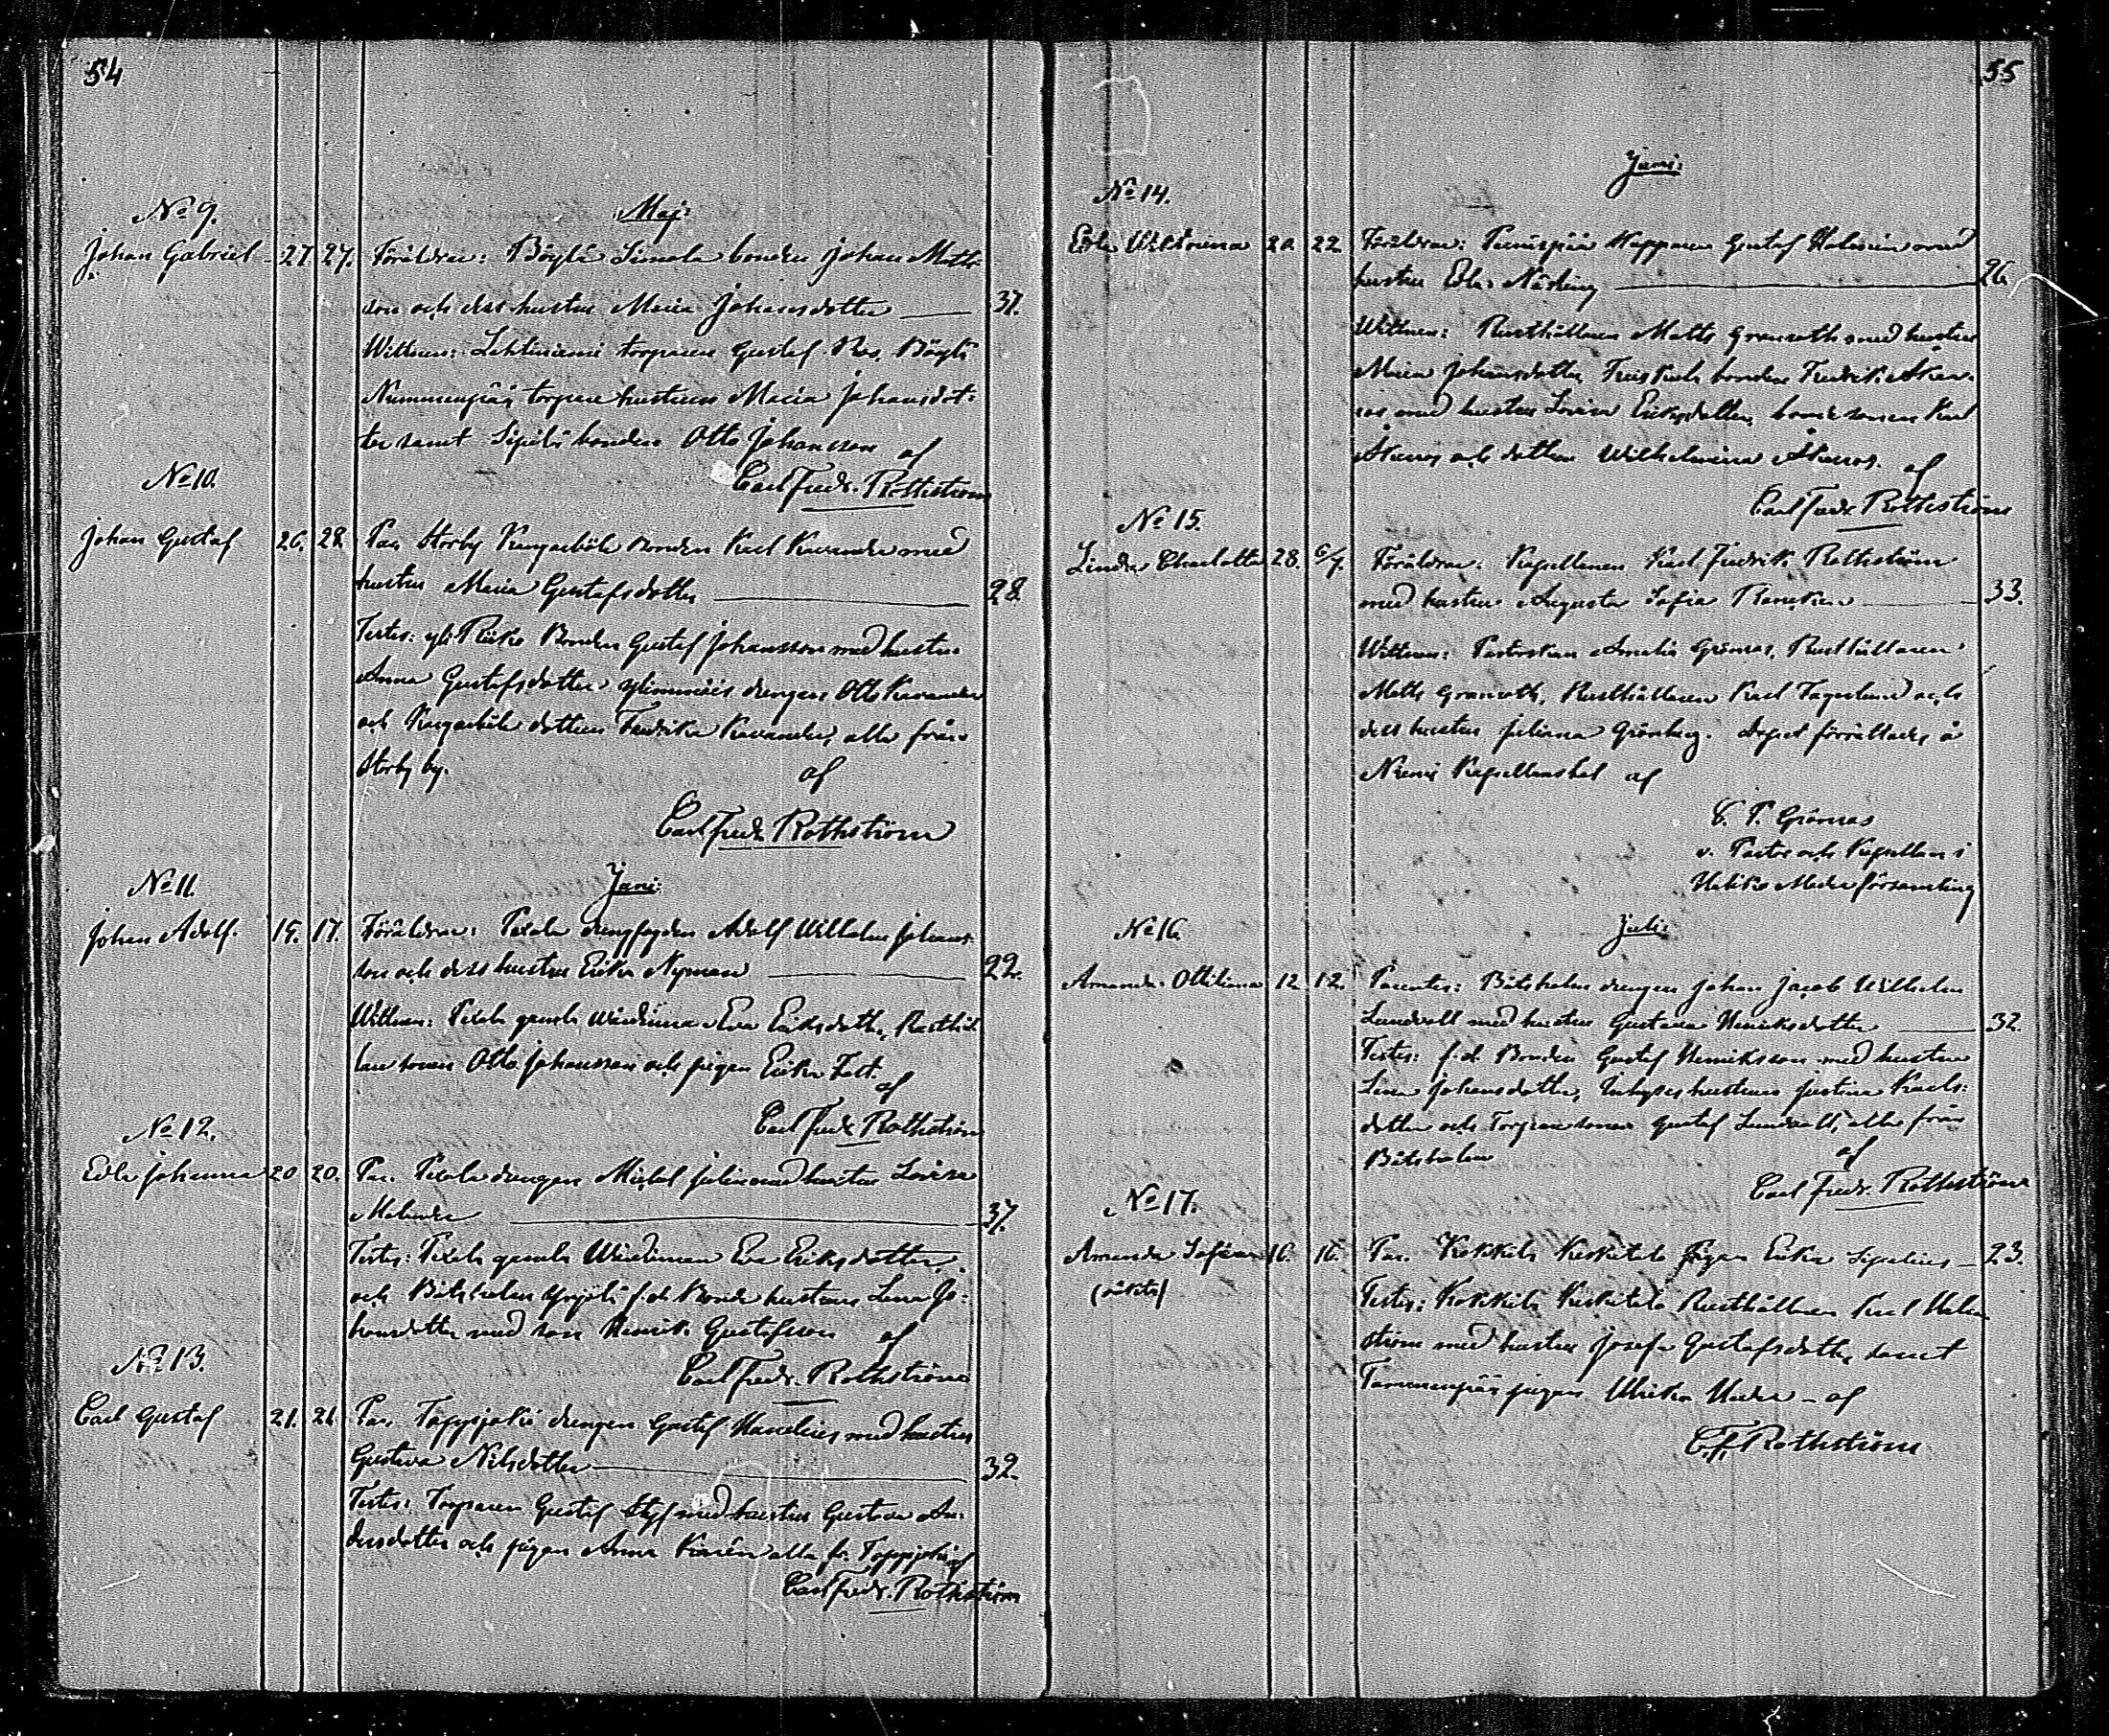 54
No 9.
Maj:
Johan Gabriel 27. 27. Föräldrar: Böyli Simola bonden Johan Matts-
son och dess hustru Maria Johansdotter 37.
Wittnen: Lehtiniemi torparen Gustaf Ros, Böyli
Nummenpää torpare hustrun Maria Johansdot-
ter samt Sipilä bonden Otto Johansson af
Carl Fredr. Rothström
No 10.
Johan Gustaf 26. 28. Par. Storby Kungaböle Bonden Karl Kavander med
hustru Maria Gustafsdotter 28.
Testes: yli Bonden Gustaf Johansson med hustru
Anna Gustafsdotter drengen Otto Kavander
och dottren Fredrika Kavander, alla från
Storby by. af
Carl Fredr. Rothström
No 11.
Juni:
Johan Adolf. 15. 17. Föräldrar: Pexola drengfogden Adolf Wilhelm Johans-
son och dess hustru Erika Nyman 22.
Wittnen: Pexola gamla wärdinna Eva Eriksdotter, Rusthål-
lare sonen Otto Johansson och pigan Erika
af
Carl Fredr. Rothström
No 12.
Edla Johanna 20. 20. Par. Pexola drengen Michel Julin med hustru Lovisa
37.
Testes: Pexola gamla Wärdinnan Eva Eriksdotter,
och Båtsholm f.d. Bonde hustrun Lena Jo-
hansdotter med son Henrik Gustafsson af
Carl Fredr. Rothström
No 13.
Carl Gustaf 21. 21. Par. Tappsjoki drengen Gustaf med hustru
Gustava Nilsdotter 32.
Testes: Torparen Gustaf Styf med hustru Gustava An-
dersdotter och pigan Anna alla fr. Tappsjoki af
Carl Fredr. Rothström
55
Juni:
No 14.
Edla Wiktorina 20. 22. Föräldrar: Gustaf med
hustru Edla Näsling 26.
Wittnen: Rusthållaren Matts Granroth med hustru
Maria Johansdotter, bonden Fredrik Åke-
ros med hustru Lovisa Eriksdotter, bonde sonen Karl
Åkeros och dottren Wilhelmina Åkeros. af
Carl Fredr Rothström
No 15.
Linda Charlotta 28. 6/7. Föräldrar: Kapellanen Karl Fredrik Rothström
med hustru Augusta Sofia 33.
Wittnen: Pastorskan Amalia Grönros, Rusthållaren
Matts Granroth, Rusthållaren Karl Fagerlund och
dess hustru Juliana Grönberg. Dopet förrättades å
Niemi Kapellansbol af
C. P. Grönros
v. Pastor och Kapellan i
församling
No 16.
Juli:
Amanda Ottiliana 12 12. Parentes: Båtsholm drengen Johan Jacob Wilhelm
Lundvall med hustru Gustava Henriksdotter 32.
Testes: f.d. Bonden Gustaf Henriksson med hustru
Lena Johansdotter, Inhyses hustrun Justina Karls-
dotter och Torpare sonen Gustaf Lundvall, alla från
Båtsholm af
Carl Fredr. Rothström
No 17.
Amanda Sofia 16. 16. Par. Kokkila Keskitalo Pigan Erika Sipelius 23.
(oäkta)
Testes: Kokkila Keskitalo Rusthållaren Karl Malm-
ström med hustru Josefa Gustafsdotter, samt
Tammenpää pigan Ulrika af
C. F. Rothström